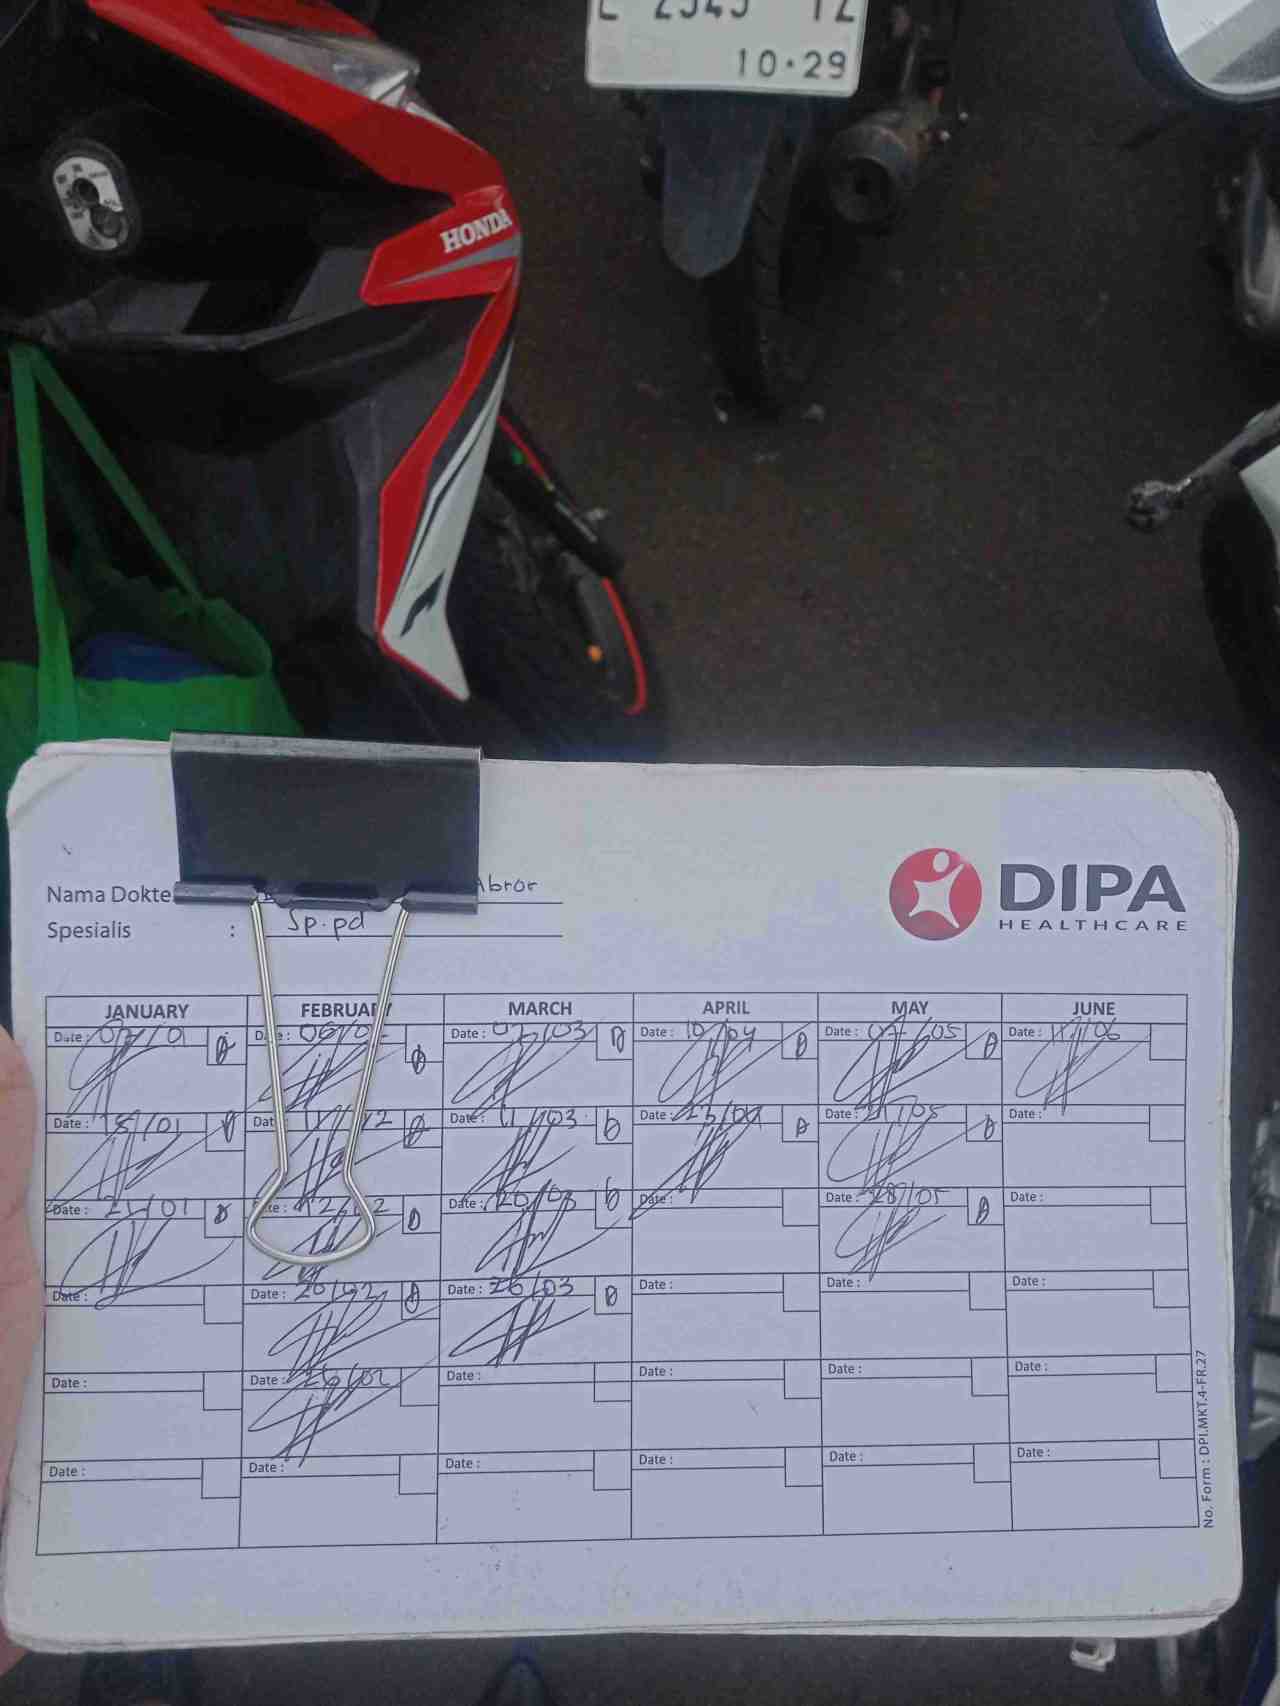 10·29
HONDA
Nama Dokte
Abror
Spesialis : Sp.pd
DIPA
HEALTHCARE
JANUARY FEBRUARY MARCH APRIL MAY JUNE
Date : 07/01 Date : 06/02 Date : 07/03 Date : 10/04 Date : 07/05 Date : 11/06
Date : 15/01 Date : Date : 11/03 Date : 23/04 Date : 21/05 Date :
Date : 21/01 Date : Date : 20/03 Date : Date : 28/05 Date :
Date : Date : 20/02 Date : 26/03 Date : Date : Date :
Date : Date : 26/02 Date : Date : Date : Date :
Date : Date : Date : Date : Date : Date :
No. Form : DPI.MKT.4-FR.27